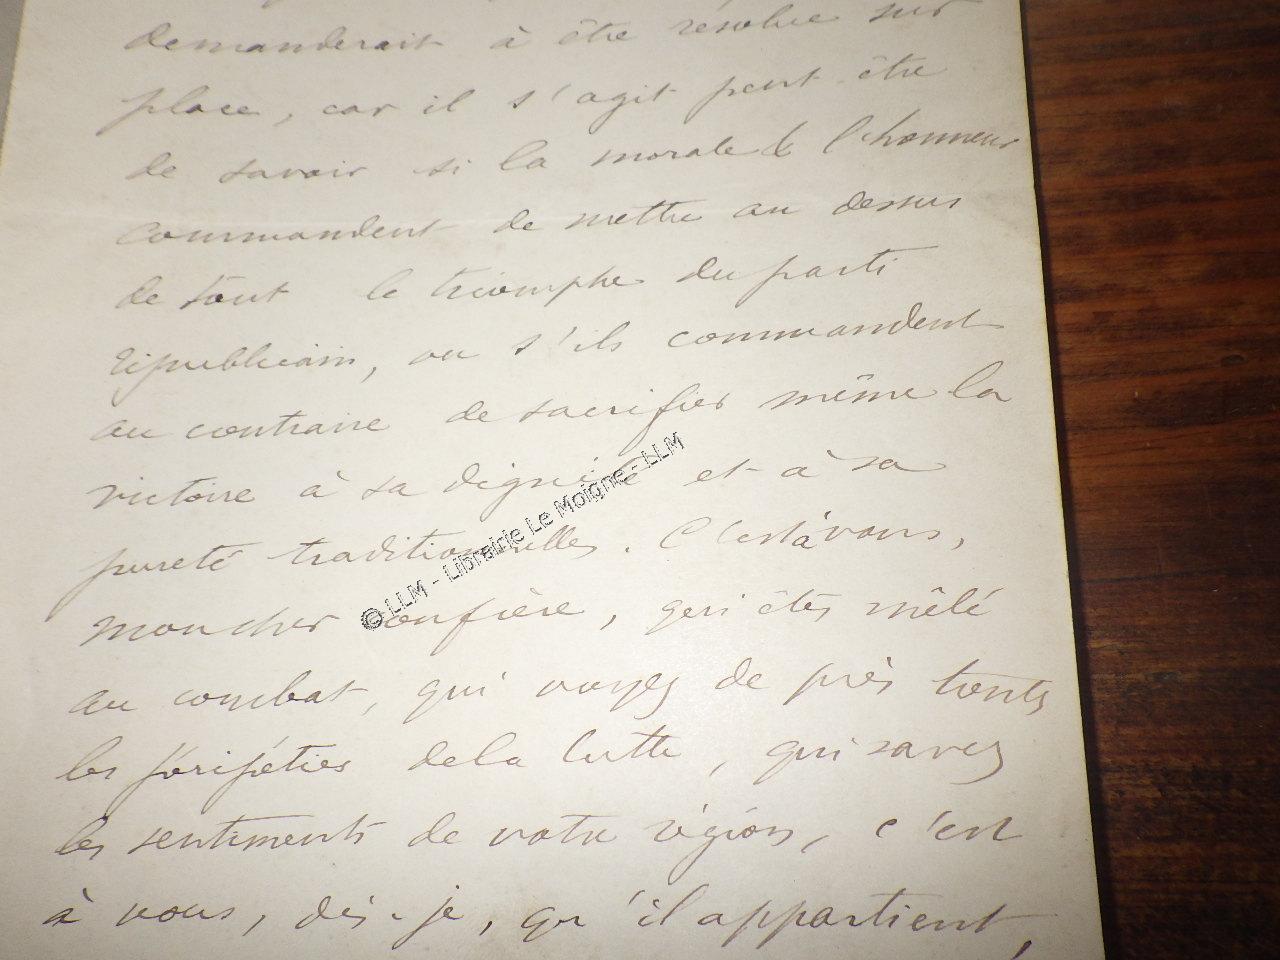 demanderait à être résolue sur
place, car il s'agit peut-être
de savoir si la morale & l'honneur
commandent de mettre au dessus
de tout le triomphe du parti
républicain, ou s'ils commandent
au contraire de sacrifier même la
victoire à sa dignité et à sa
pureté traditionnelles. C'est à vous,
mon cher confrère, qui êtes mêlé
au combat, qui voyez de près toutes
les péripéties de la lutte, qui savez
les sentiments de votre région, c'est
à vous, dis-je, qu'il appartient,
© LLM - Librairie Le Moigne - LLM